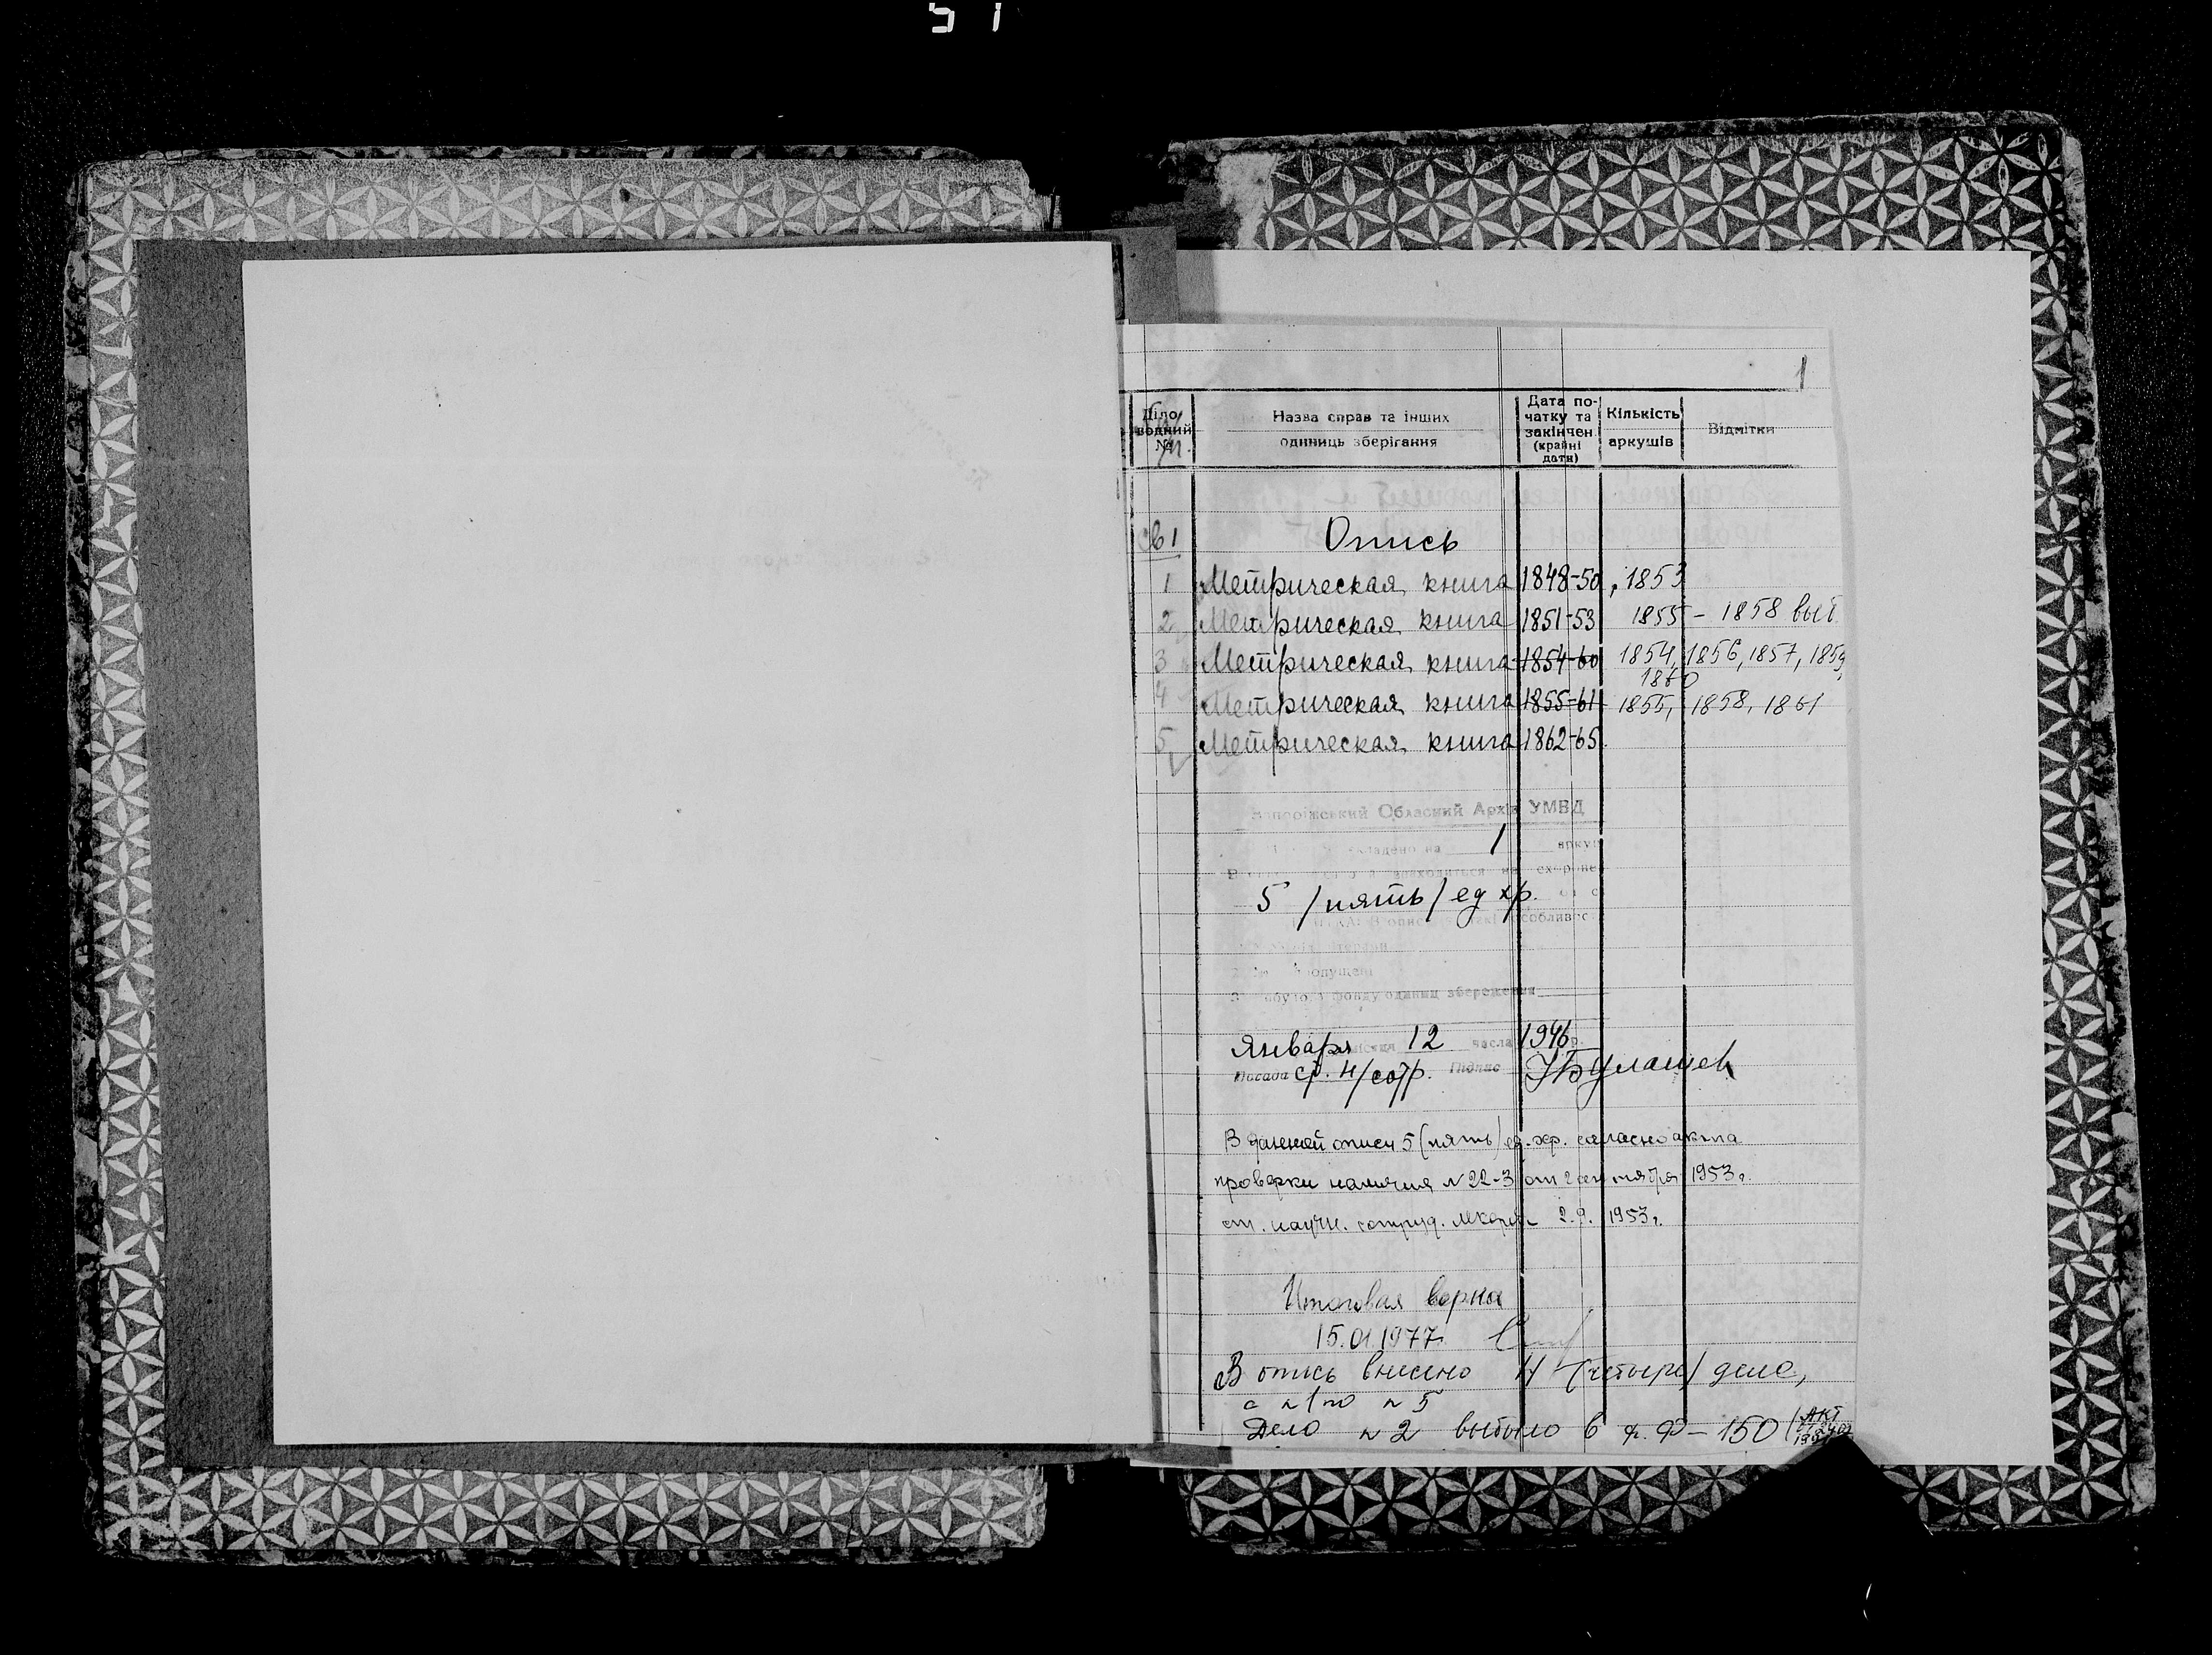 1
Діло-
водний
№
Назва справ та інших
одиниць зберігання
Дата по-
чатку та
закінчен.
(крайні
дати)
Кількість
аркушів
Відмітки
Опись
1 Метрическая книга 1848-50, 1853
2 Метрическая книга 1851-53 1855 - 1858 выб.
3 Метрическая книга 1854-60 1854, 1856, 1857, 1859,
1860
4 Метрическая книга 1855-61 1855, 1858, 1861
5 Метрическая книга 1862-65
Запорізський Обласний Архів УМВД
складено на 1 аркуш
5 /пять/ ед хр.
фонду одиниц збереження
Января 12 числа 1946 р.
Посада ст. н/сотр. Підпис
В данной описи 5 (пять) ед. хр. согласно акта
проверки наличия № 22-3 от 2 сентября 1953 г.
ст. научн. сотруд. 2.9. 1953 г.
Итоговая верна
15.01.1977
В опись внесено 4 (четыре) дела,
с № 1 по № 5
Дело № 2 выбыло в ф. Ф-150 (Акт